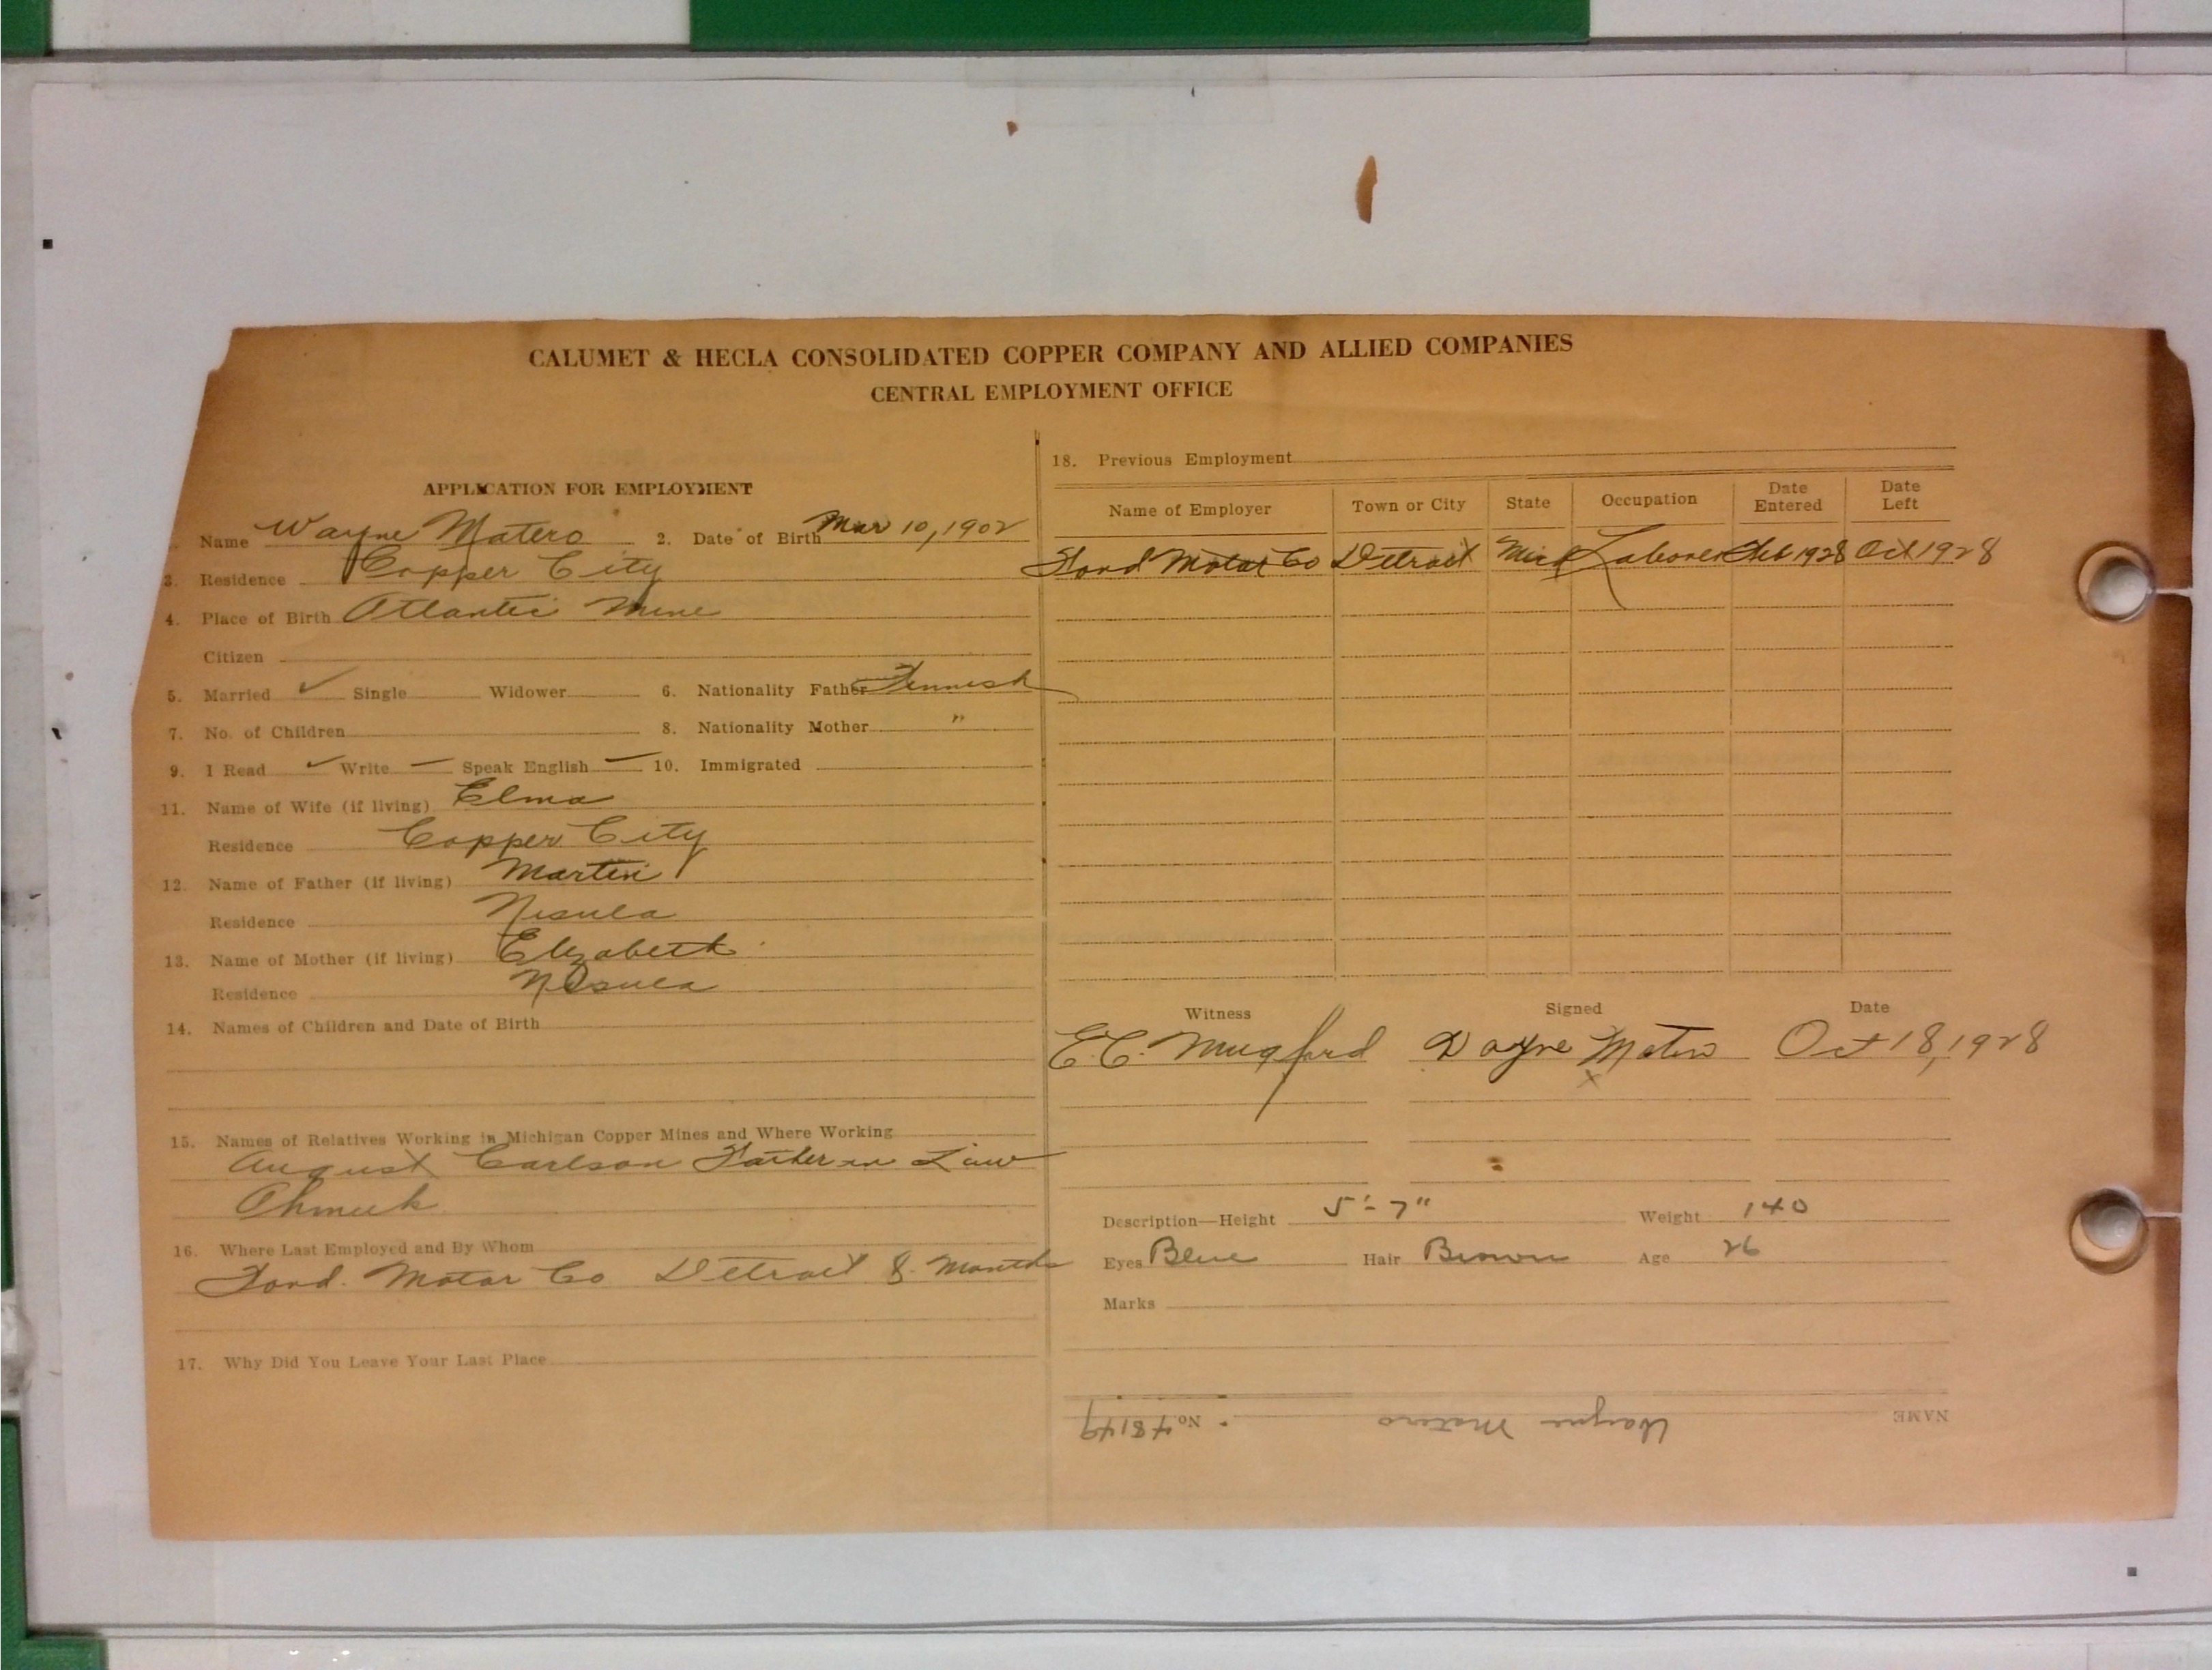 CALUMET & HECLA CONSOLIDATED COPPER COMPANY AND ALLIED COMPANIES
CENTRAL EMPLOYMENT OFFICE
APPLICATION FOR EMPLOYMENT
Name Wayne Matero 2. Date of Birth Mar 10, 1902
3. Residence Copper City
4. Place of Birth Atlantic Mine
Citizen
5. Married ✓ Single Widower 6. Nationality Father Finnish
7. No. of Children 8. Nationality Mother "
9. I Read ✓ Write — Speak English — 10. Immigrated
11. Name of Wife (if living) Elma
Residence Copper City
12. Name of Father (if living) Martin
Residence Nisula
13. Name of Mother (if living) Elizabeth
Residence Nisula
14. Names of Children and Date of Birth
15. Names of Relatives Working in Michigan Copper Mines and Where Working
August Carlson Father in Law
Ahmeek
16. Where Last Employed and By Whom
Ford Motor Co Detroit 8 Months
17. Why Did You Leave Your Last Place
18. Previous Employment
Name of Employer Town or City State Occupation Date Entered Date Left
Ford Motor Co Detroit Mich Laborer Feb 1928 Oct 1928
Witness Signed Date
E.C. Mugford Wayne Matero Oct 18, 1928
x
Description—Height 5'-7" Weight 140
Eyes Blue Hair Brown Age 26
Marks
NAME Wayne Matero No. 48149